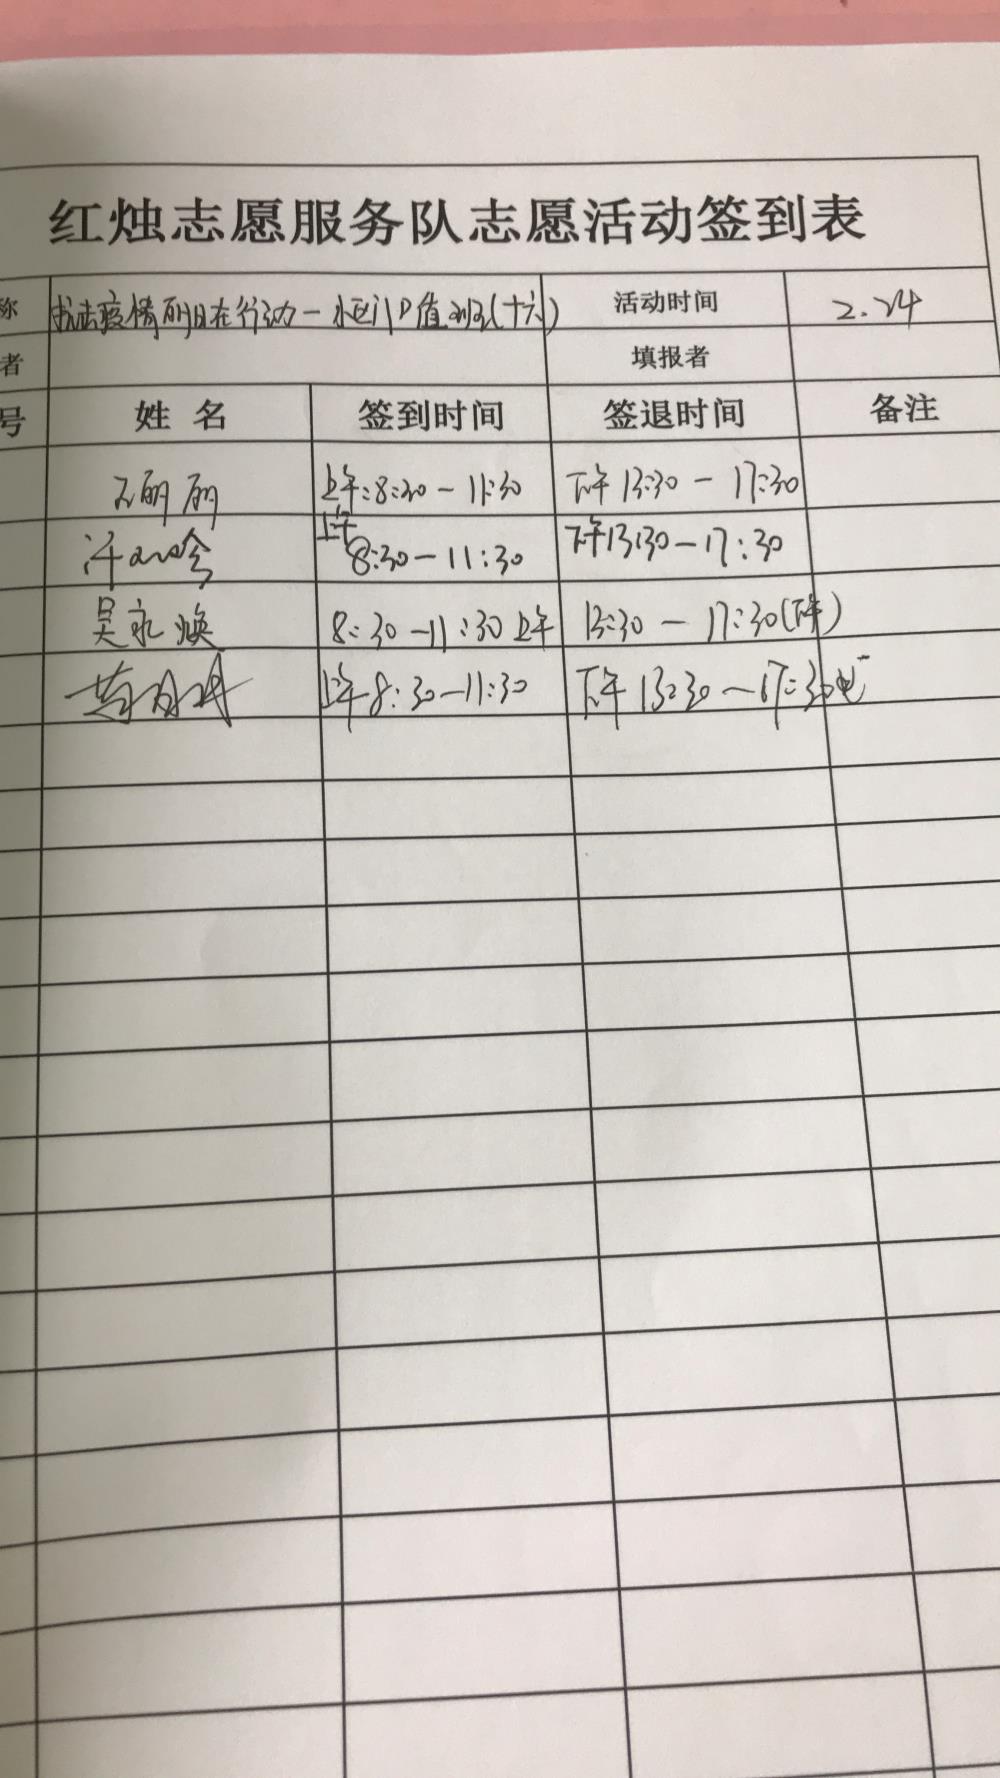 红烛志愿服务队志愿活动签到表
称 抗击疫情 在行动一小区门口值班(十六) 活动时间 2.24
者 填报者
号 姓名 签到时间 签退时间 备注
丽 上午:8:30-11:30 下午13:30-17:30
上午8:30-11:30 下午13:30-17:30
吴永焕 8:30-11:30上午 13:30-17:30(下午)
上午8:30-11:30 下午13:30-17:30